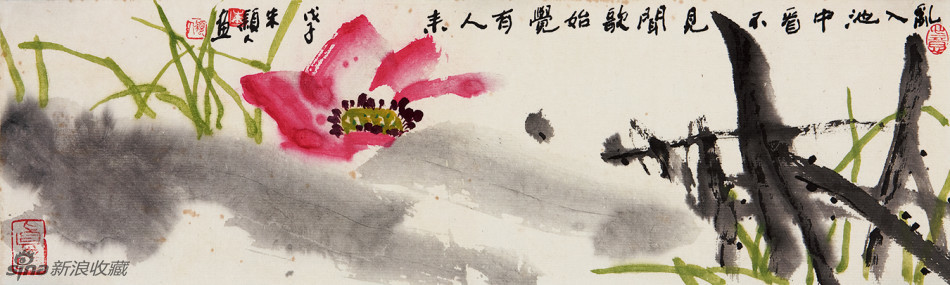 亂入池中看不見聞歌始覺有人来
戊子
朱穎人
畫
sina新浪收藏